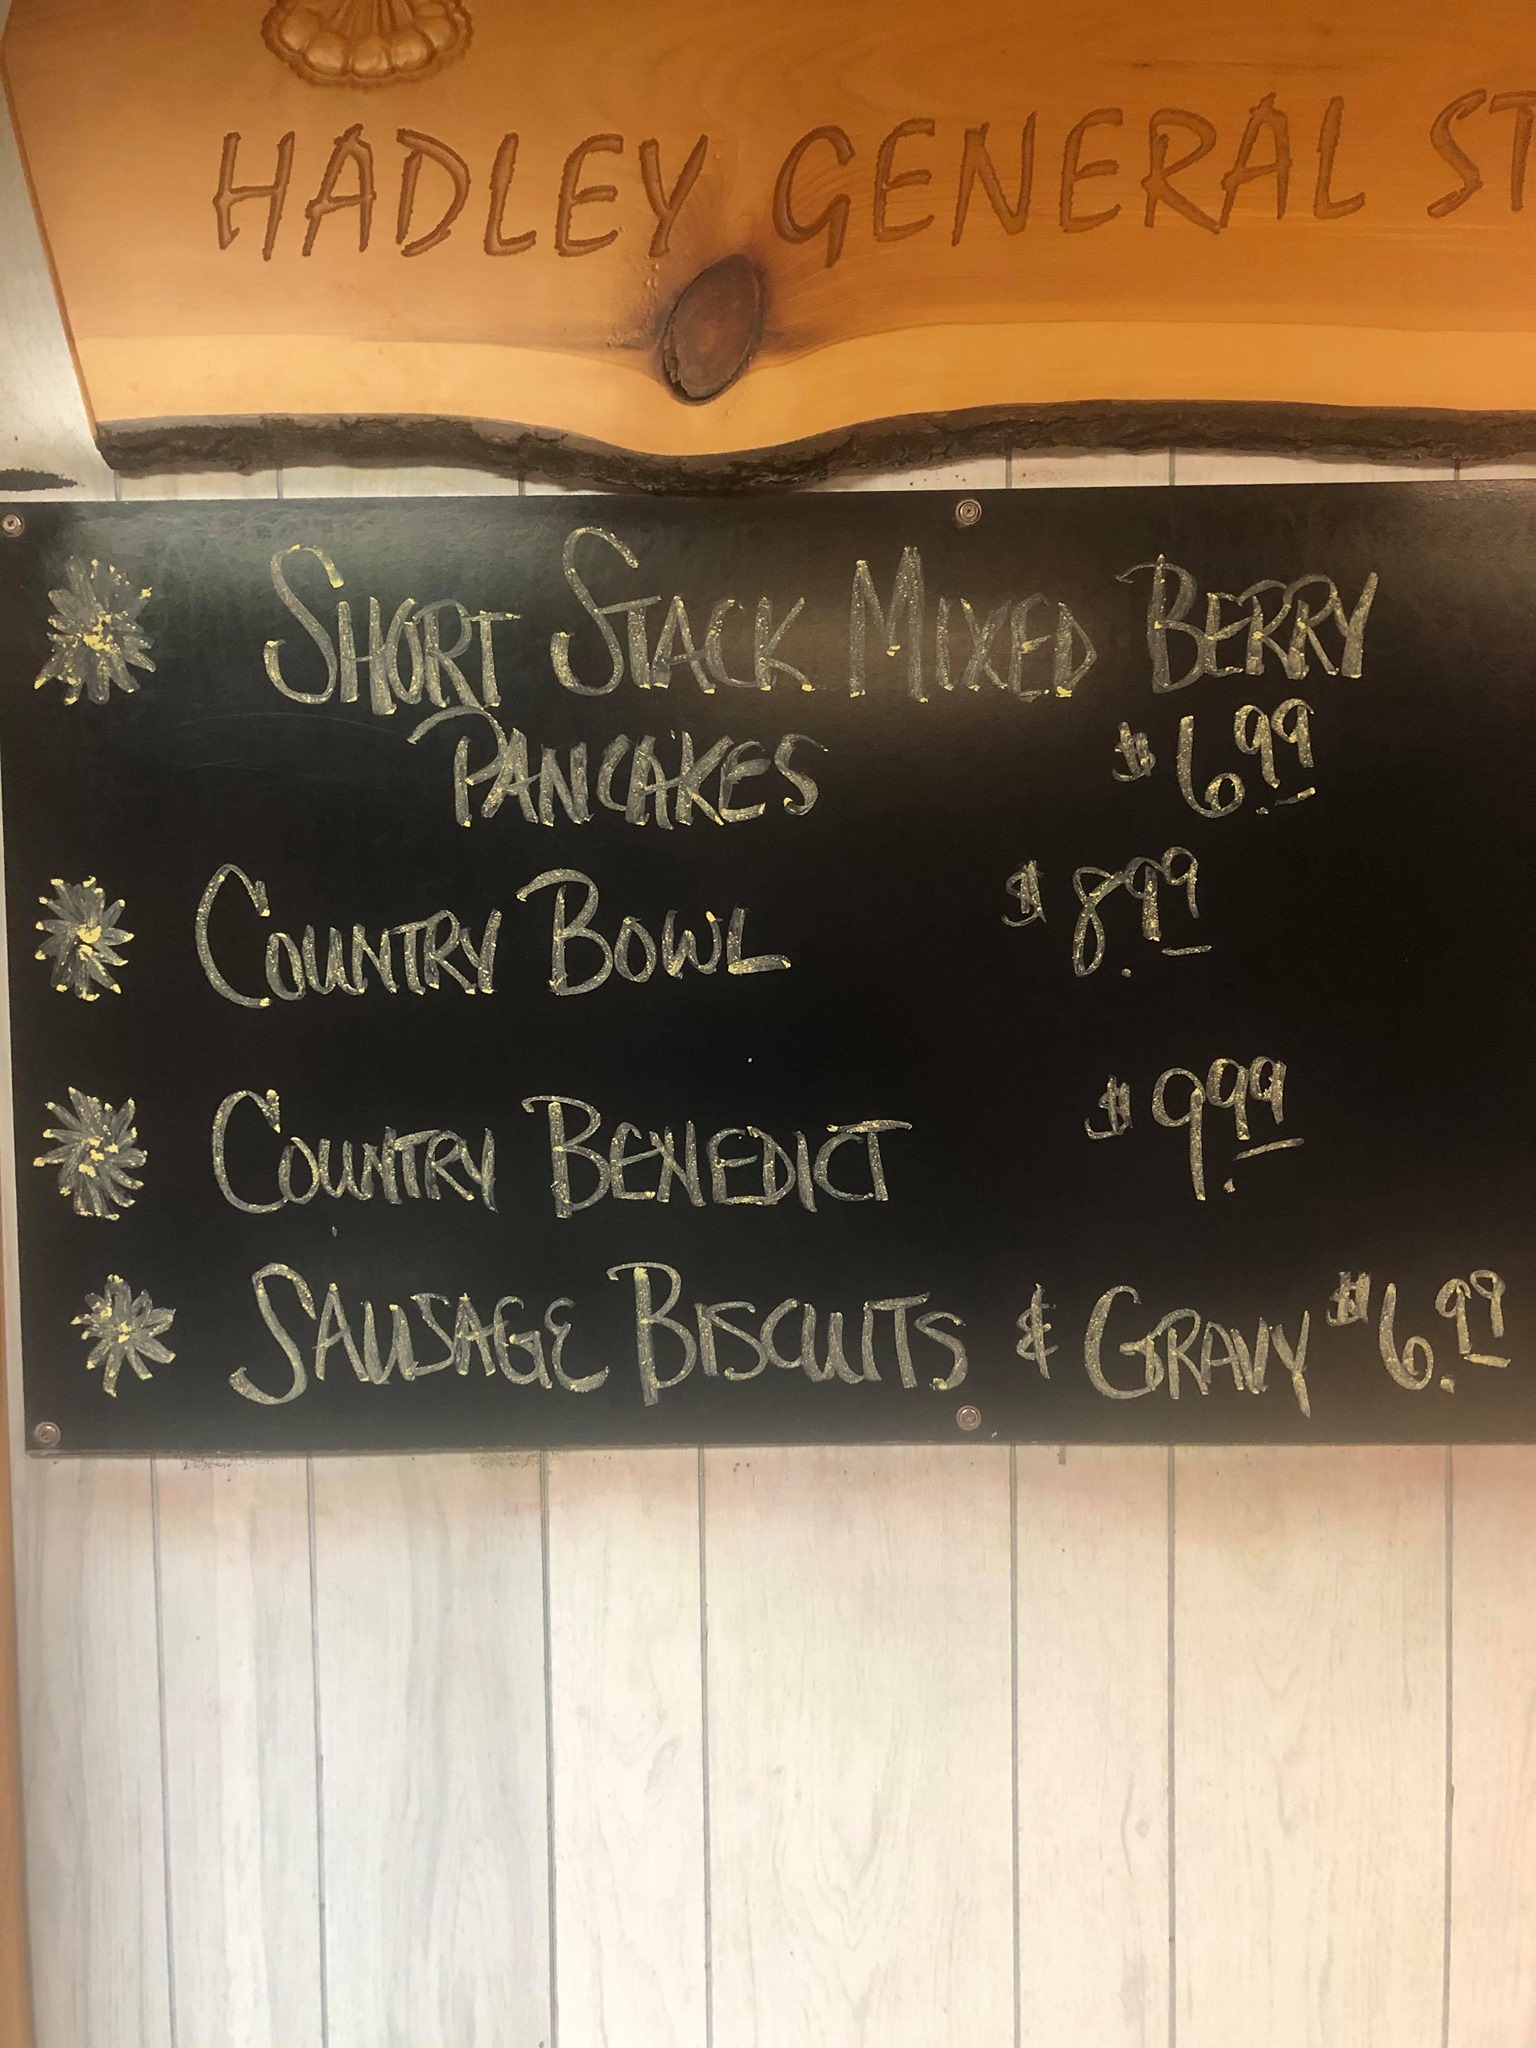 HADLEY GENERAL ST
SHORT STACK MIXED BERRY
PANCAKES $6.99
COUNTRY BOWL $8.99
COUNTRY BENEDICT $9.99
SAUSAGE BISCUITS & GRAVY $6.99